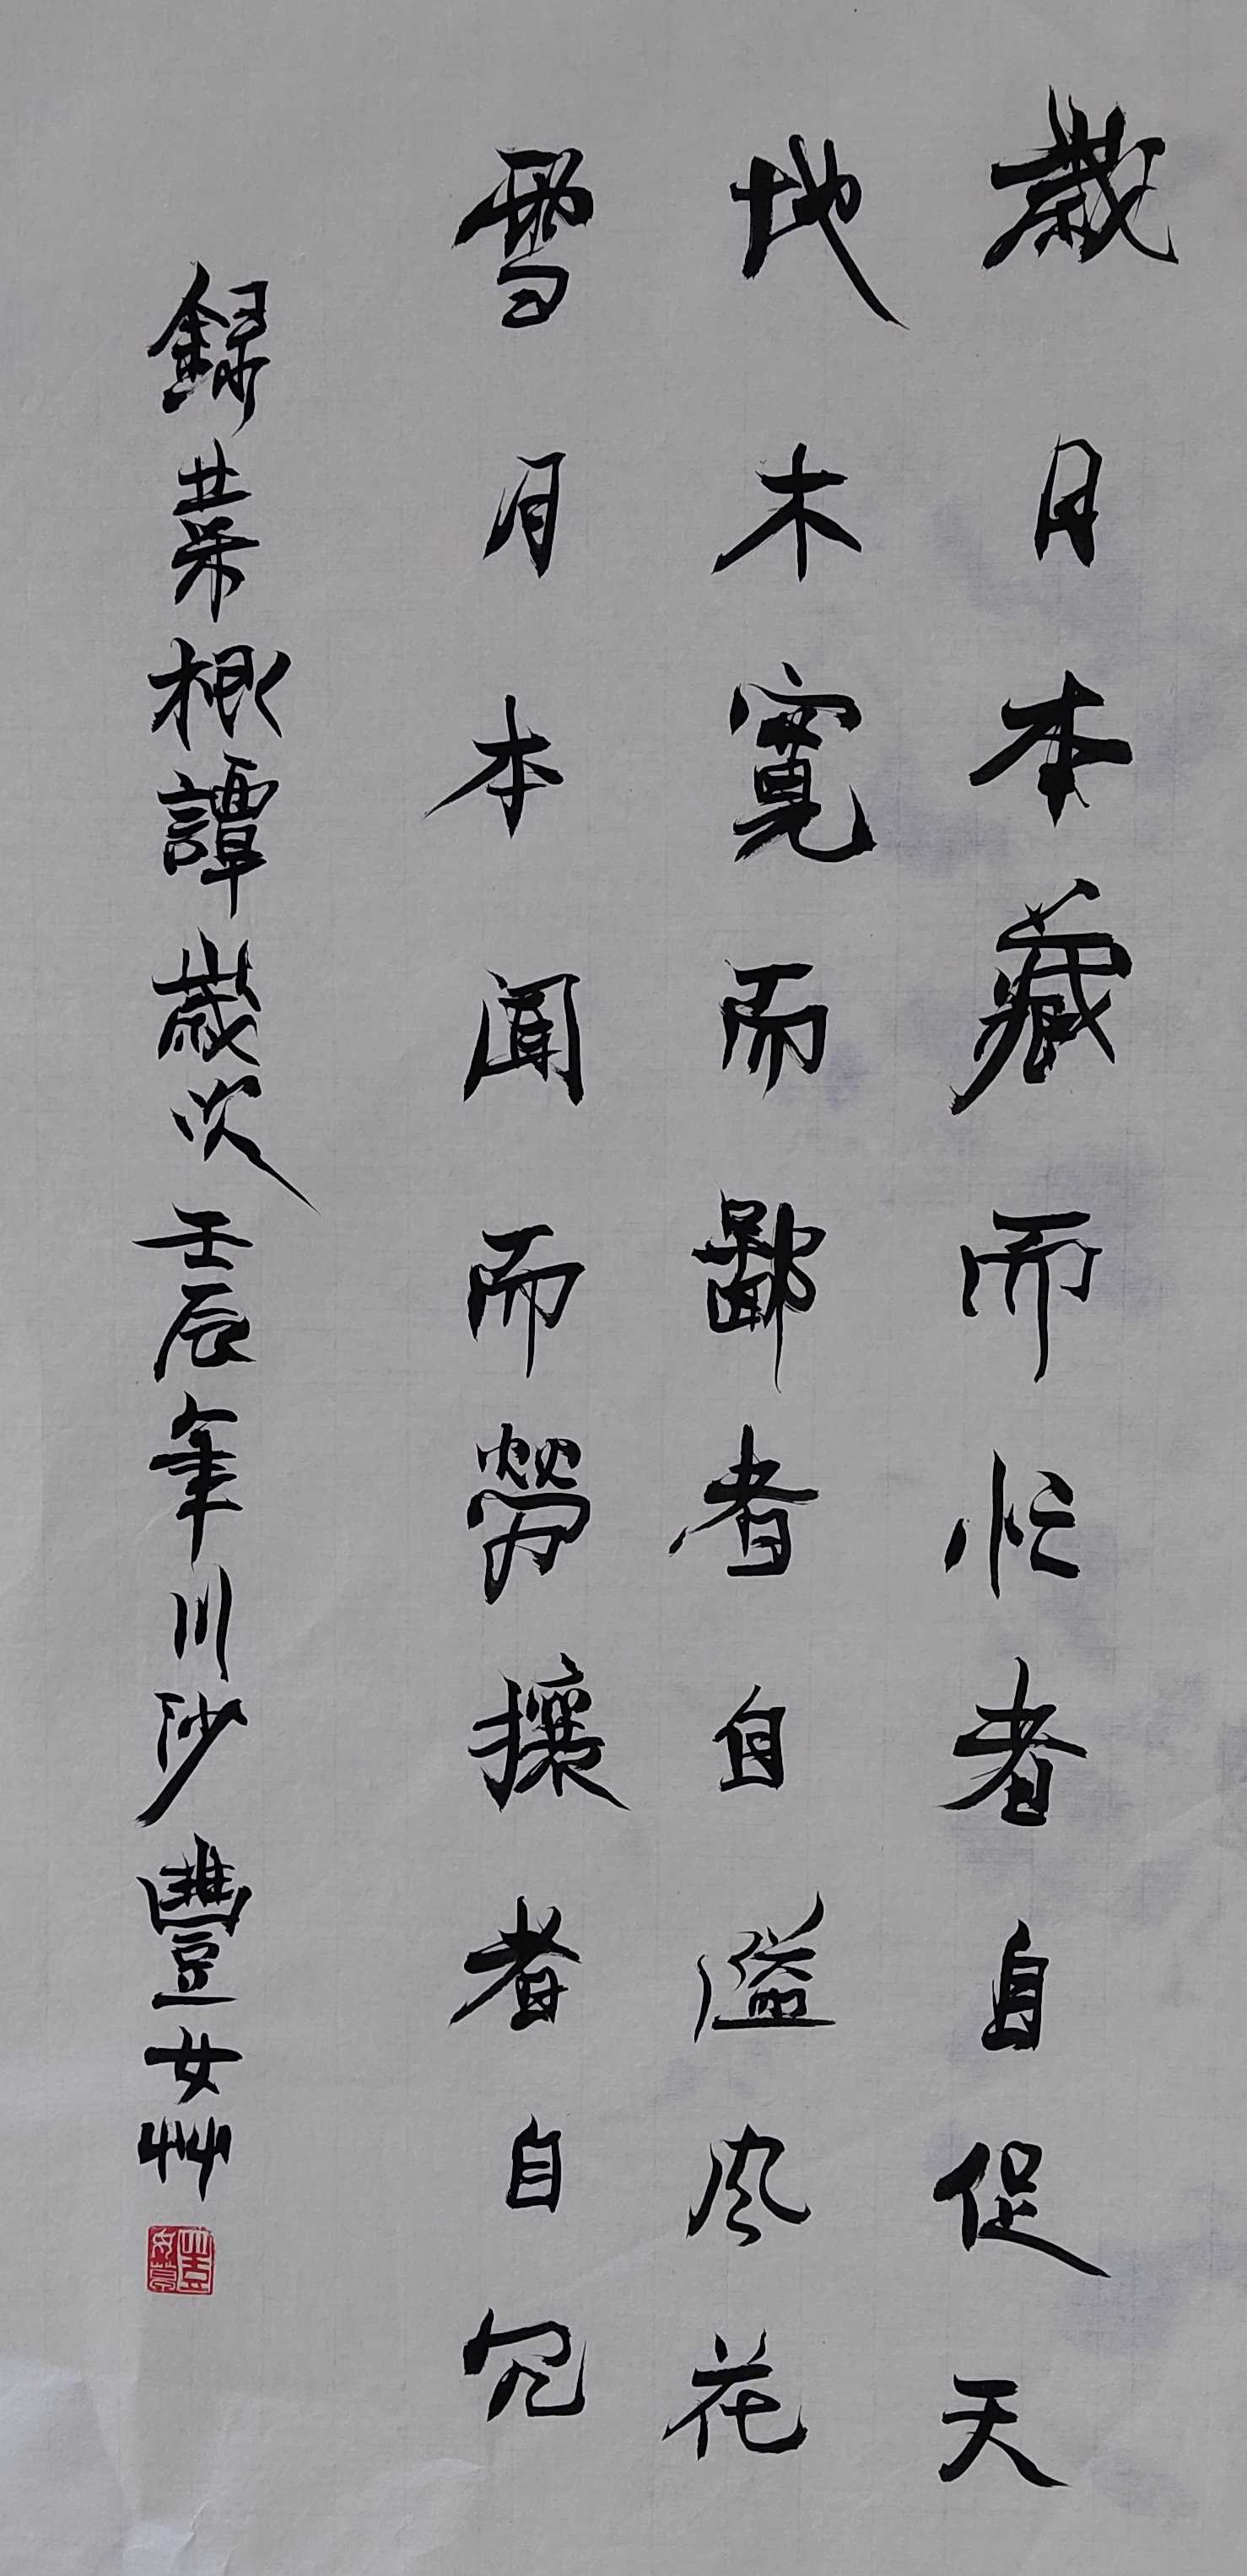 歲月本藏而忙者自促天
地木寬而鄙者自隘风花
雪月本閒而勞攘者自冗
録菜根譚歲次壬辰年川沙豐女艸